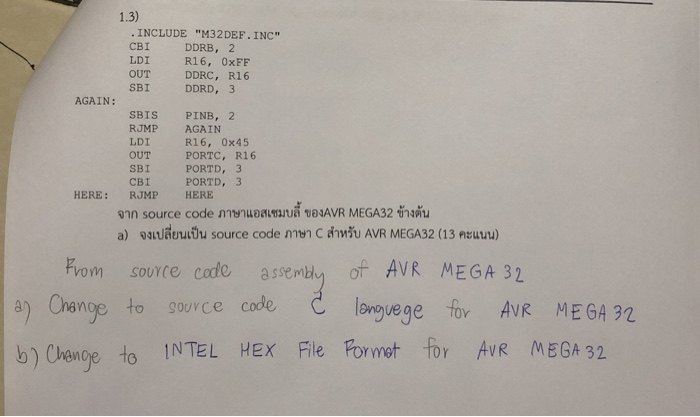 1.3)
.INCLUDE "M32DEF.INC"
CBI DDRB, 2
LDI R16, 0xFF
OUT DDRC, R16
SBI DDRD, 3
AGAIN:
SBIS PINB, 2
RJMP AGAIN
LDI R16, 0x45
OUT PORTC, R16
SBI PORTD, 3
CBI PORTD, 3
HERE: RJMP HERE
จาก source code ภาษาแอสเซมบลี้ ของAVR MEGA32 ข้างต้น
a) จงเปลี่ยนเป็น source code ภาษา C สำหรับ AVR MEGA32 (13 คะแนน)
From source code assembly of AVR MEGA 32
a) Change to source code C languege for AVR MEGA 32
b) Change to INTEL HEX File Format for AVR MEGA 32